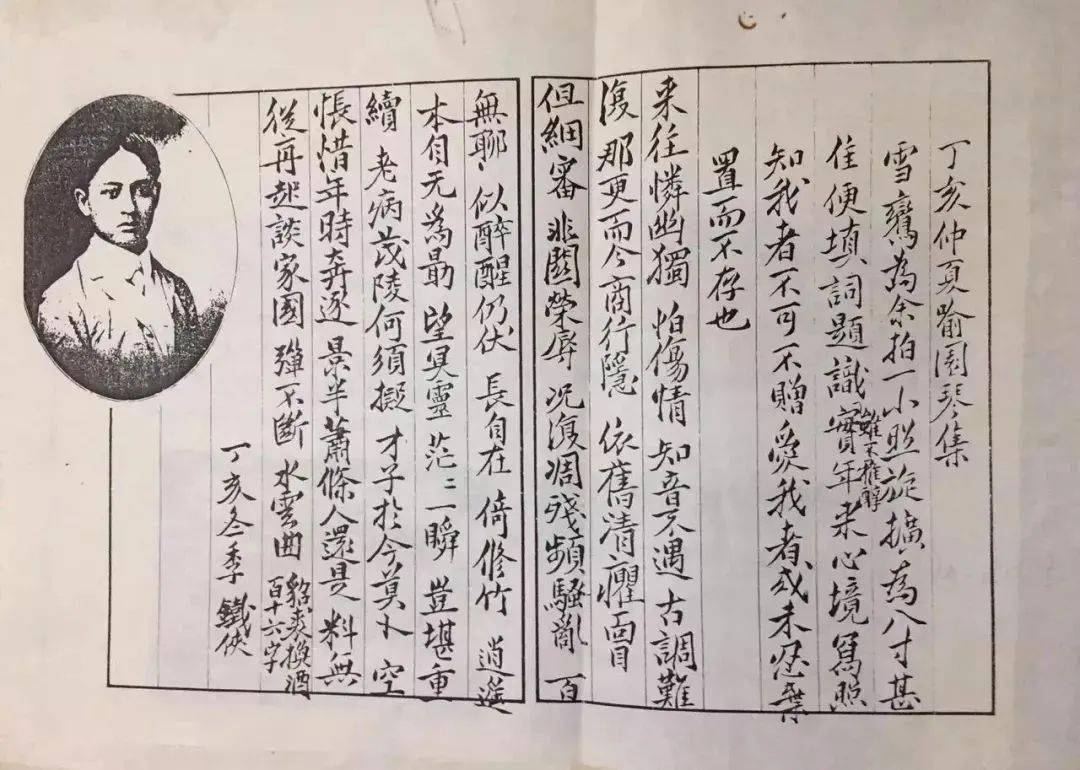 丁亥仲夏喻園琴集
雪鴦為余拍一小照旋擴為八寸甚
佳便填詞題識雖未雅醇實年來心境寫照
知我者不可不贈愛我者或未忍棄
置而不存也
來往憐幽獨 怕傷情 知音不遇 古調難
復 那更而今商行隱 依舊清癯面目
但細審 非關榮辱 況復凋殘頻騷亂 百
無聊 似醉醒仍伏 長自在 倚修竹 逍遙
本自无為勗 望冥靈 茫〻一瞬 豈堪重
續 老病茂陵何須擬 才子於今莫卜 空
悵惜年時奔逐 景半蕭條人還是 料無
從再起談家國 彈不斷 水雲曲 貂裘換酒
百十六字
丁亥冬季 鐵俠